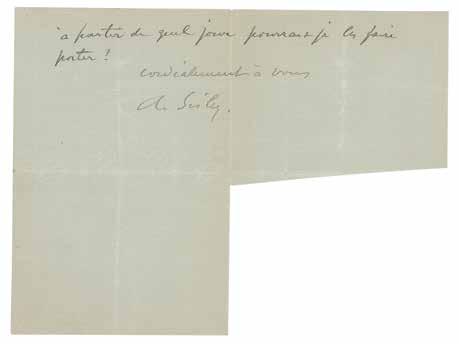 à partir de quel jour pourrais je les faire
porter ?
cordialement à vous
A. Sisley.